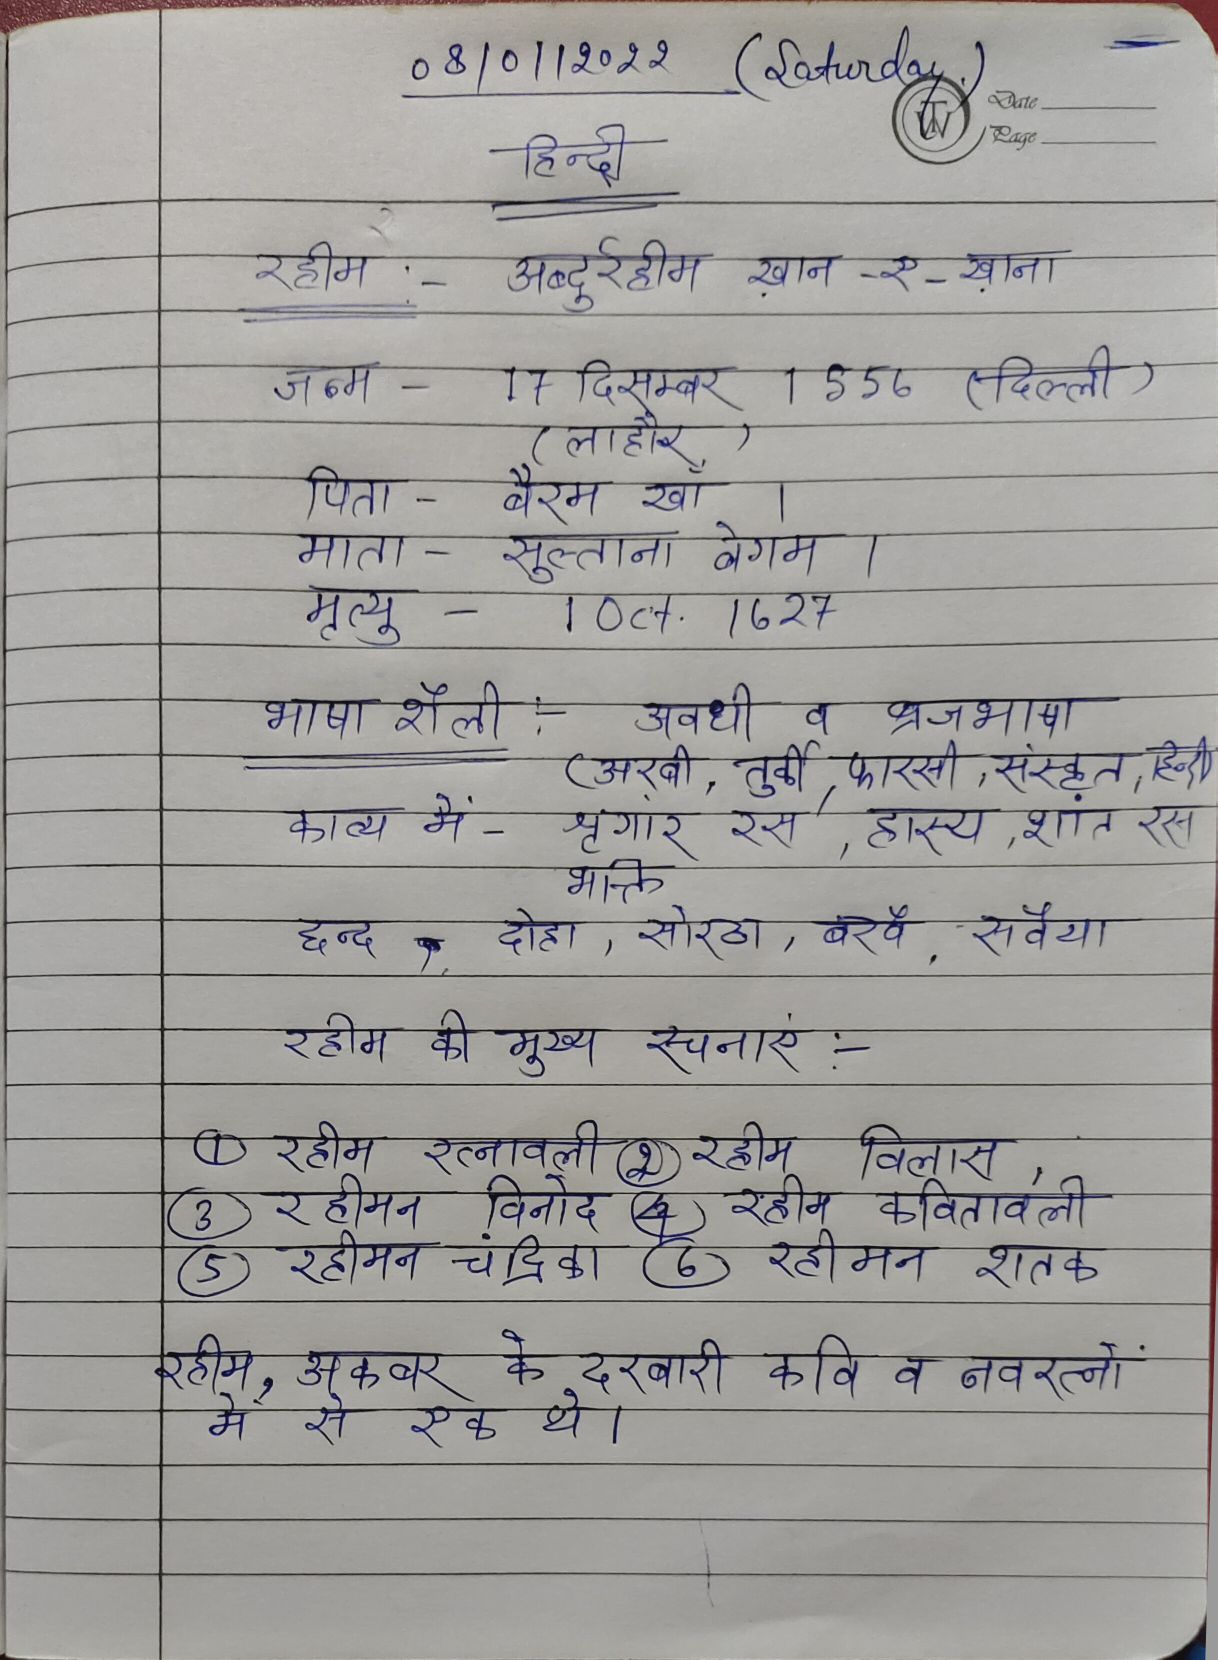 08/01/2022 (Saturday)
Date
Page
हिन्दी
रहीम :- अब्दुर्रहीम ख़ान -ए- ख़ाना
जन्म - 17 दिसम्बर 1556 (दिल्ली)
(लाहौर)
पिता - बैरम खाँ ।
माता - सुल्ताना बेगम ।
मृत्यु - 1 Oct. 1627
भाषा शैली :- अवधी व ब्रजभाषा
(अरबी, तुर्की, फारसी, संस्कृत, हिन्दी
काव्य में - श्रृगांर रस, हास्य, शांत रस
भक्ति
छन्द , दोहा, सोरठा, बरवै, सवैया
रहीम की मुख्य रचनाएं :-
① रहीम रत्नावली ② रहीम विलास,
③ रहीमन विनोद ④ रहीम कवितावली
⑤ रहीमन चंद्रिका ⑥ रहीमन शतक
रहीम, अकबर के दरबारी कवि व नवरत्नों
में से एक थे।